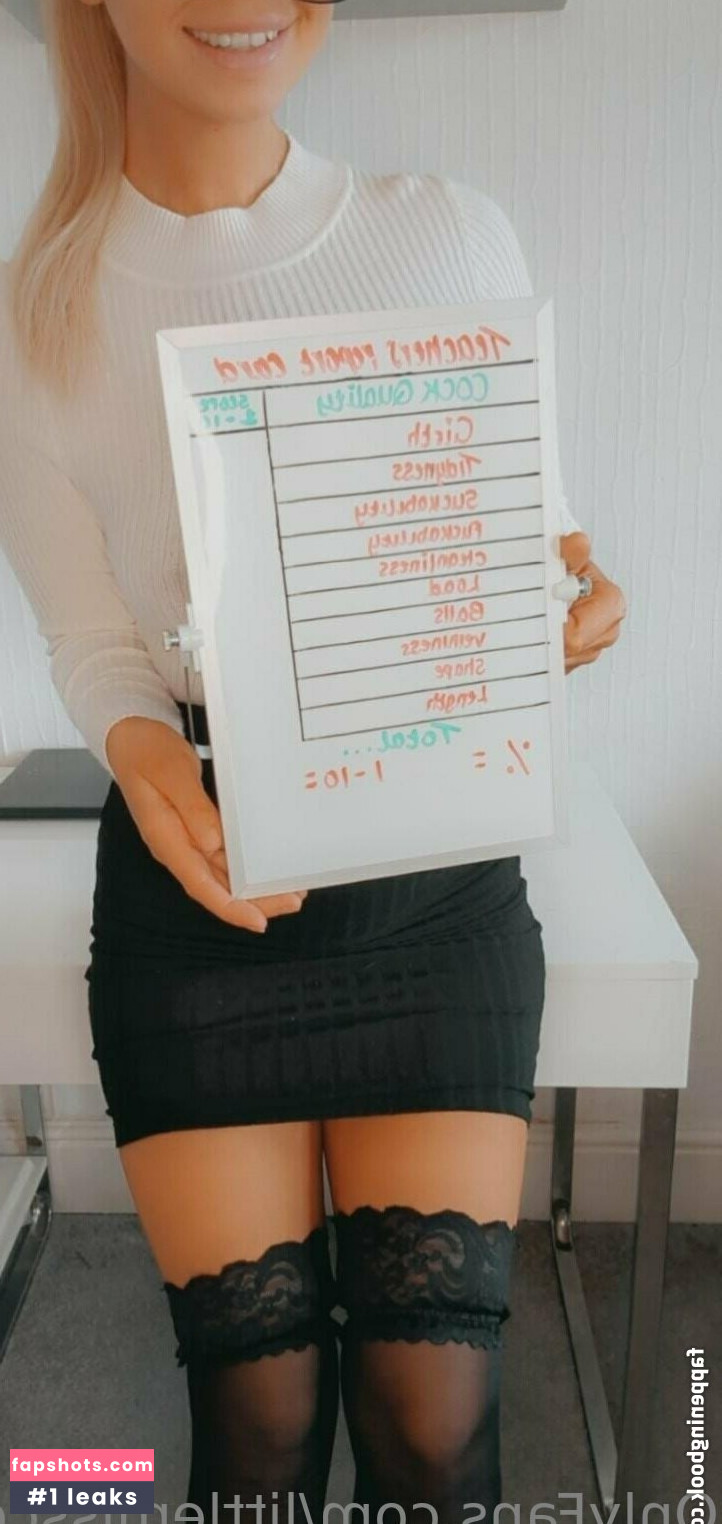 Teachers report card
Cock Quality
Score
1-10
Girth
Tidyness
Suckability
Fuckability
Cleanliness
Load
Balls
Veininess
Shape
Length
Total...
% =
1-10=
fappeningbook.co
fapshots.com
#1 leaks
OnlyFans.com/littlemiss